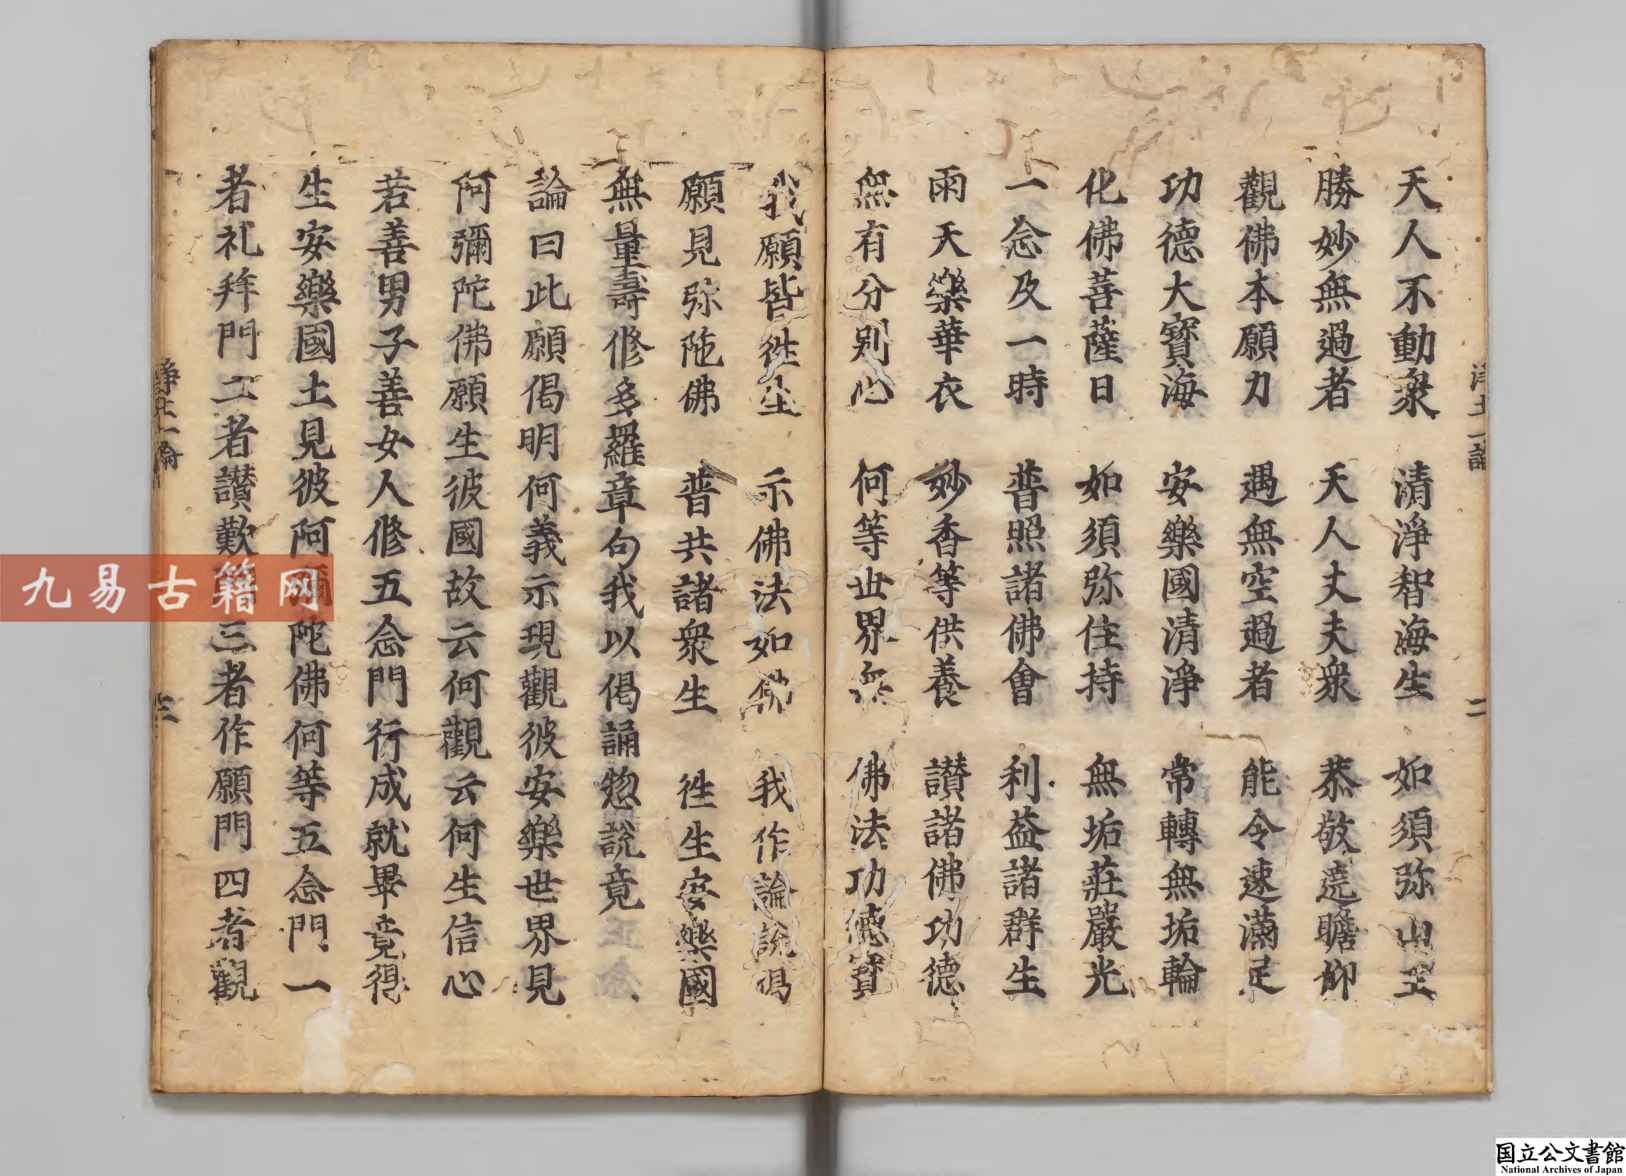 天人不動衆 清淨智海生 如須弥山王
勝妙無過者 天人丈夫衆 恭敬遶瞻仰
觀佛本願力 遇無空過者 能令速滿足
功德大寳海 安樂國清淨 常轉無垢輪
化佛菩薩日 如須弥住持 無垢莊嚴光
一念及一時 普照諸佛會 利益諸群生
雨天樂華衣 妙香等供養 讃諸佛功德
無有分别心 何等世界無 佛法功德寳
我願皆徃生 示佛法如佛 我作論說偈
願見弥陁佛 普共諸衆生 徃生安樂國
無量壽修多羅章句我以偈誦惣說竟
論曰此願偈明何義示現觀彼安樂世界見
阿彌陀佛願生彼國故云何觀云何生信心
若善男子善女人修五念門行成就畢竟得
生安樂國土見彼阿彌陀佛何等五念門一
者礼拜門二者讃歎門三者作願門四者觀
淨土論
二
淨土論
九易古籍网
国立公文書館
National Archives of Japan